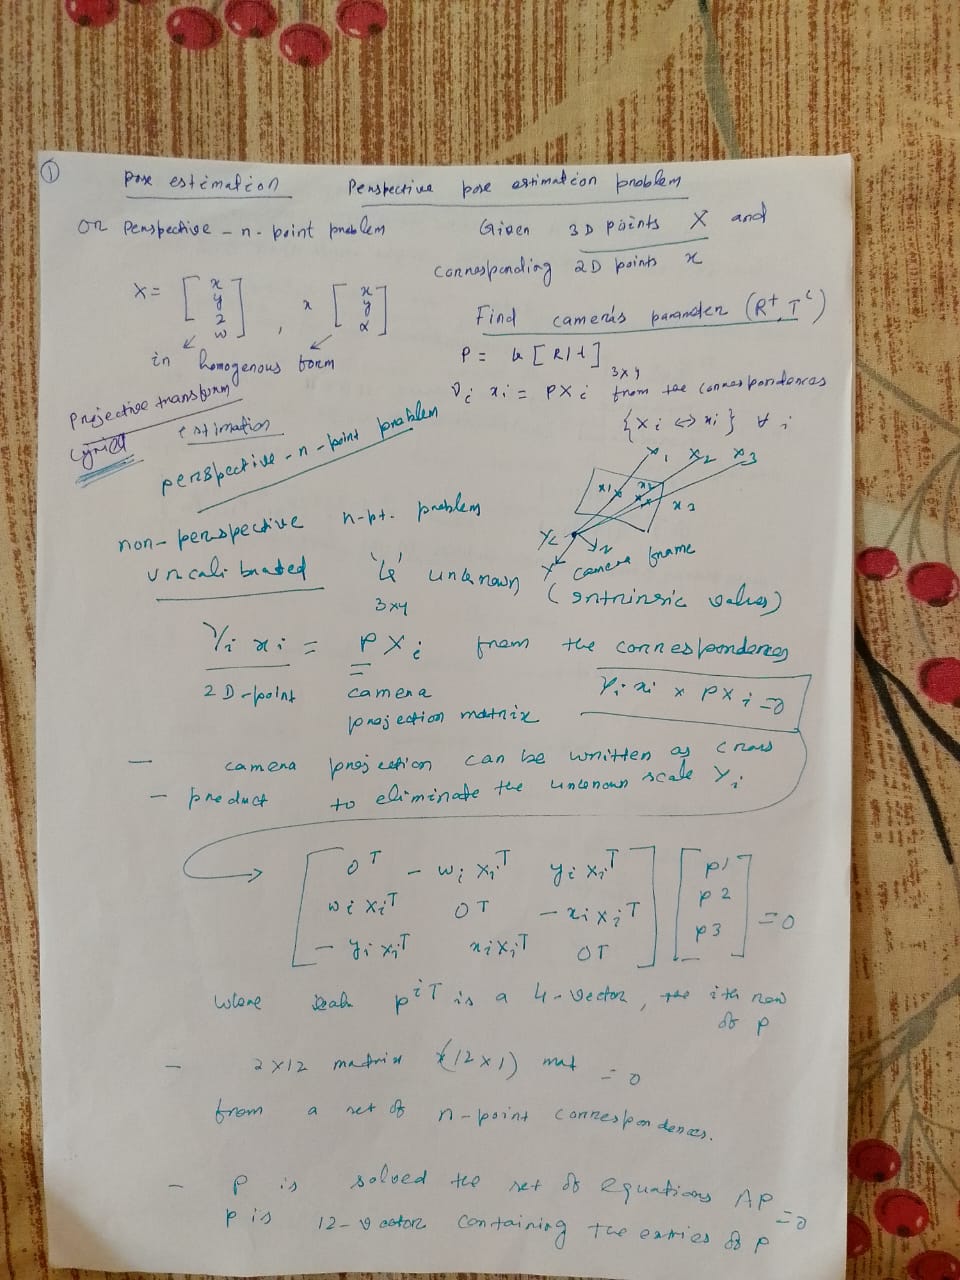 ①
pose estimation Perspective pose estimation problem
or Perspective - n - point problem
Given 3D points X and
corresponding 2D points x
X = [ x y z w ] , x [ x y α ]
in homogenous form
Find camera's parameter (R^t, T^c)
P = k [R|t] 3x4
γi xi = PXi from the correspondences
{Xi ⇔ xi} ∀ i
Projective transform
estimation
perspective - n - point problem
x1 x2 x3
x1 x2
x3
Yc
Y
camera frame
non-perspective n-pt. problem
uncalibrated 'k' unknown (intrinsic values)
3x4
γi xi = PXi from the correspondences
2D-point camera
projection matrix
γi xi x PXi = 0
— camera projection can be written as cross
— product to eliminate the unknown scale γi
[ 0T - wi xiT yi xiT ] [ p1 ]
[ wi xiT 0T - xi xiT ] [ p2 ] = 0
[ - yi xiT xi xiT 0T ] [ p3 ]
where each p^iT is a 4-vector, the ith row
of P
— 2x12 matrix x(12x1) mat = 0
from a set of n-point correspondences.
— P is solved the set of equations AP = 0
P is 12-vector containing the entries of P